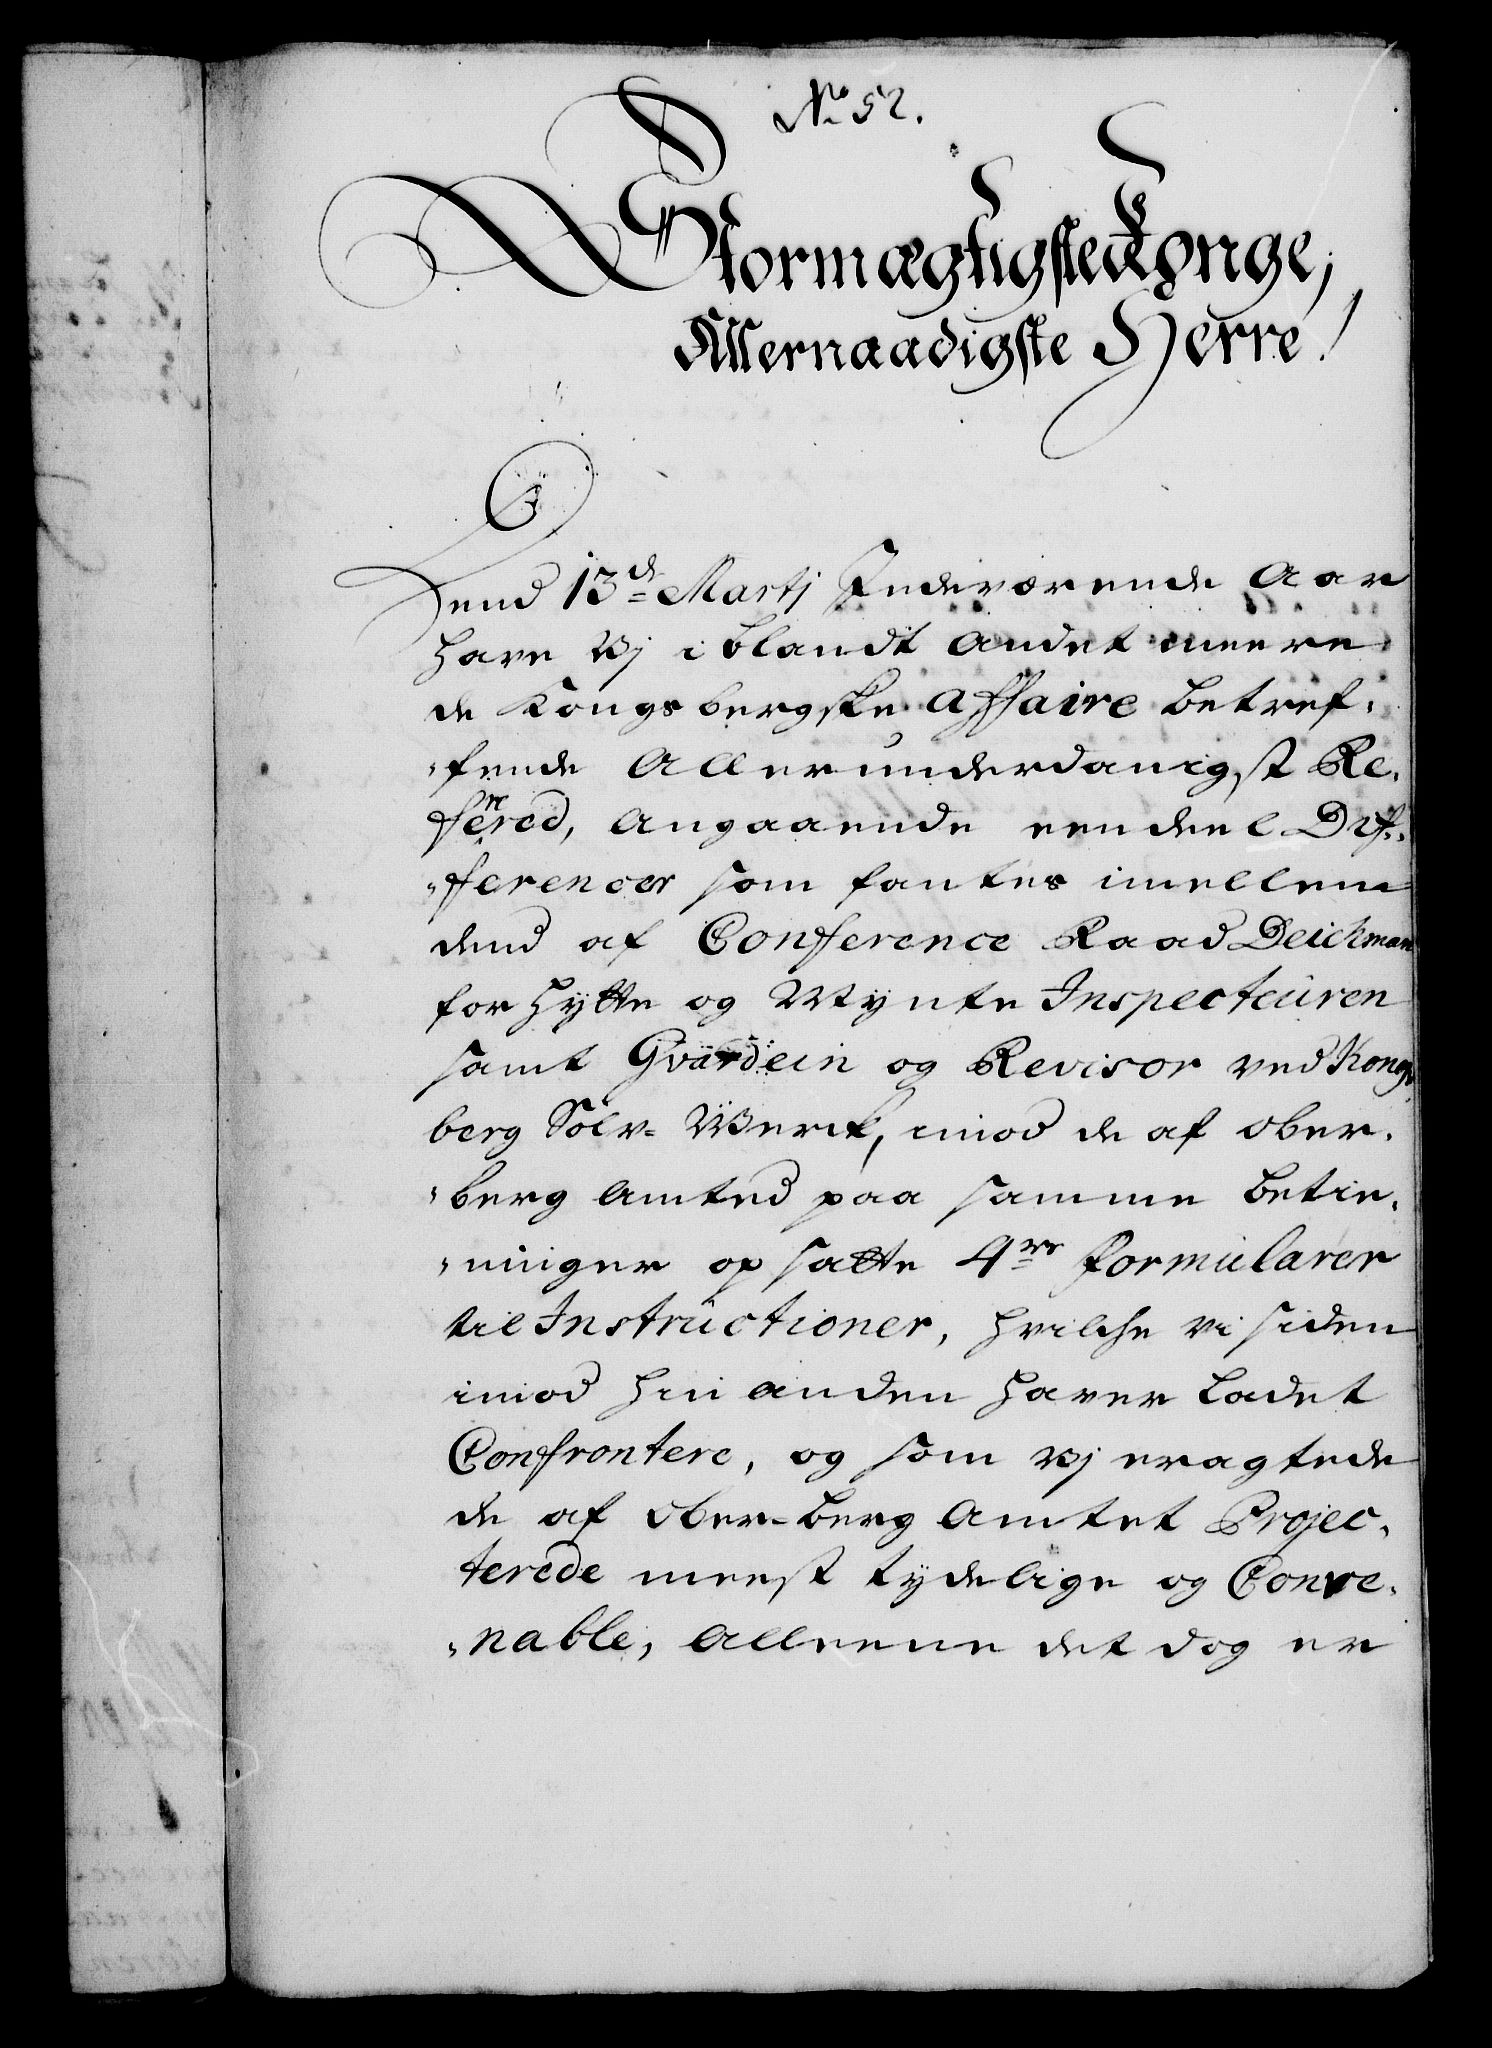 No 52.
Stormægtigste Konge,
Allernaadigste Herre!
Dend 13de Martj Indeværende Aar
have Vj i blandt andet meere
de Kongsbergske Affaire betref-
fende Allerunderdanigst Re-
ferered, angaaende een deel Dif-
ferencer som fantes imellem
dend af Conference Raad Deichman
for Hytte og Mynte Inspecteuren
samt Gvardein og Revisor ved Kongs
berg Sölv-Werck, imod de af Ober-
berg Amted paa samme betie-
ninger op satte 4re Formularer
til Instructioner, hvilche vi siden
imod hin anden haver ladet
Confrontere, og som Vj eragtede
de af Ober-berg Amtet Projec-
terede meest tydelige og Conve-
nable, Alleene det dog er